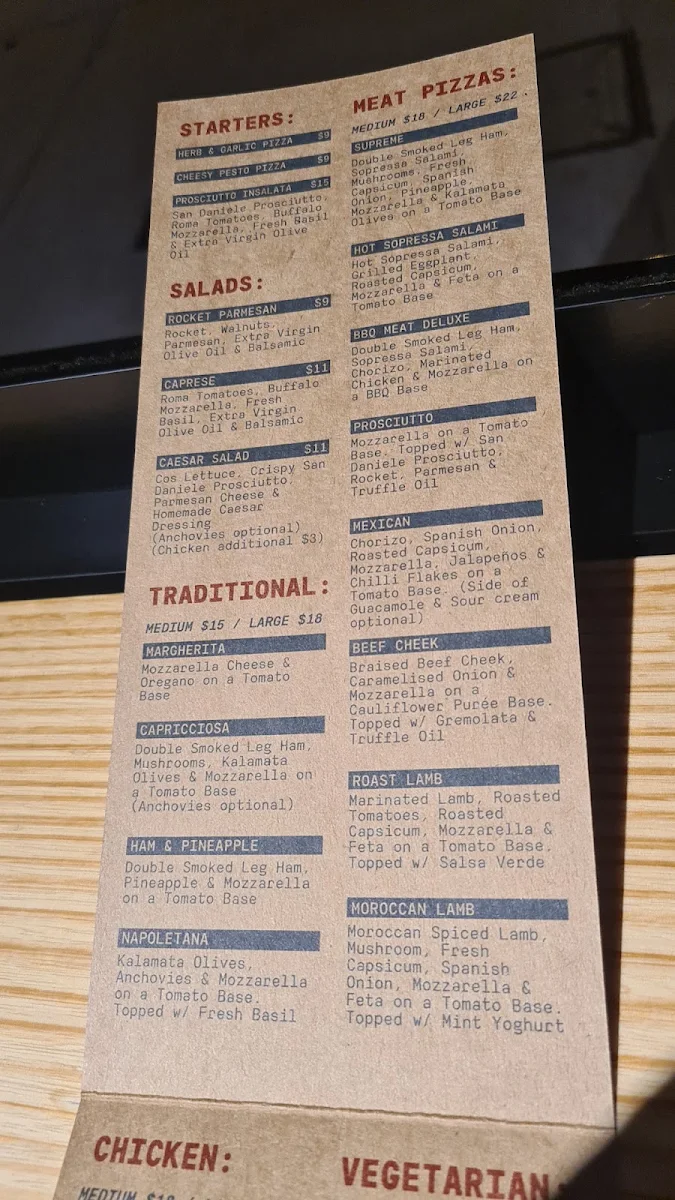 STARTERS:
HERB & GARLIC PIZZA $9
CHEESY PESTO PIZZA $9
PROSCIUTTO INSALATA $15
San Daniele Prosciutto,
Roma Tomatoes, Buffalo
Mozzarella, Fresh Basil
& Extra Virgin Olive
Oil
SALADS:
ROCKET PARMESAN $9
Rocket, Walnuts,
Parmesan, Extra Virgin
Olive Oil & Balsamic
CAPRESE $11
Roma Tomatoes, Buffalo
Mozzarella, Fresh
Basil, Extra Virgin
Olive Oil & Balsamic
CAESAR SALAD $11
Cos Lettuce, Crispy San
Daniele Prosciutto,
Parmesan Cheese &
Homemade Caesar
Dressing
(Anchovies optional)
(Chicken additional $3)
TRADITIONAL:
MEDIUM $15 / LARGE $18
MARGHERITA
Mozzarella Cheese &
Oregano on a Tomato
Base
CAPRICCIOSA
Double Smoked Leg Ham,
Mushrooms, Kalamata
Olives & Mozzarella on
a Tomato Base
(Anchovies optional)
HAM & PINEAPPLE
Double Smoked Leg Ham,
Pineapple & Mozzarella
on a Tomato Base
NAPOLETANA
Kalamata Olives,
Anchovies & Mozzarella
on a Tomato Base.
Topped w/ Fresh Basil
MEAT PIZZAS:
MEDIUM $18 / LARGE $22
SUPREME
Double Smoked Leg Ham,
Sopressa Salami,
Mushrooms, Fresh
Capsicum, Spanish
Onion, Pineapple,
Mozzarella & Kalamata
Olives on a Tomato Base
HOT SOPRESSA SALAMI
Hot Sopressa Salami,
Grilled Eggplant,
Roasted Capsicum,
Mozzarella & Feta on a
Tomato Base
BBQ MEAT DELUXE
Double Smoked Leg Ham,
Sopressa Salami,
Chorizo, Marinated
Chicken & Mozzarella on
a BBQ Base
PROSCIUTTO
Mozzarella on a Tomato
Base. Topped w/ San
Daniele Prosciutto,
Rocket, Parmesan &
Truffle Oil
MEXICAN
Chorizo, Spanish Onion,
Roasted Capsicum,
Mozzarella, Jalapeños &
Chilli Flakes on a
Tomato Base. (Side of
Guacamole & Sour cream
optional)
BEEF CHEEK
Braised Beef Cheek,
Caramelised Onion &
Mozzarella on a
Cauliflower Purée Base.
Topped w/ Gremolata &
Truffle Oil
ROAST LAMB
Marinated Lamb, Roasted
Tomatoes, Roasted
Capsicum, Mozzarella &
Feta on a Tomato Base.
Topped w/ Salsa Verde
MOROCCAN LAMB
Moroccan Spiced Lamb,
Mushroom, Fresh
Capsicum, Spanish
Onion, Mozzarella &
Feta on a Tomato Base.
Topped w/ Mint Yoghurt
CHICKEN:
MEDIUM
VEGETARIAN